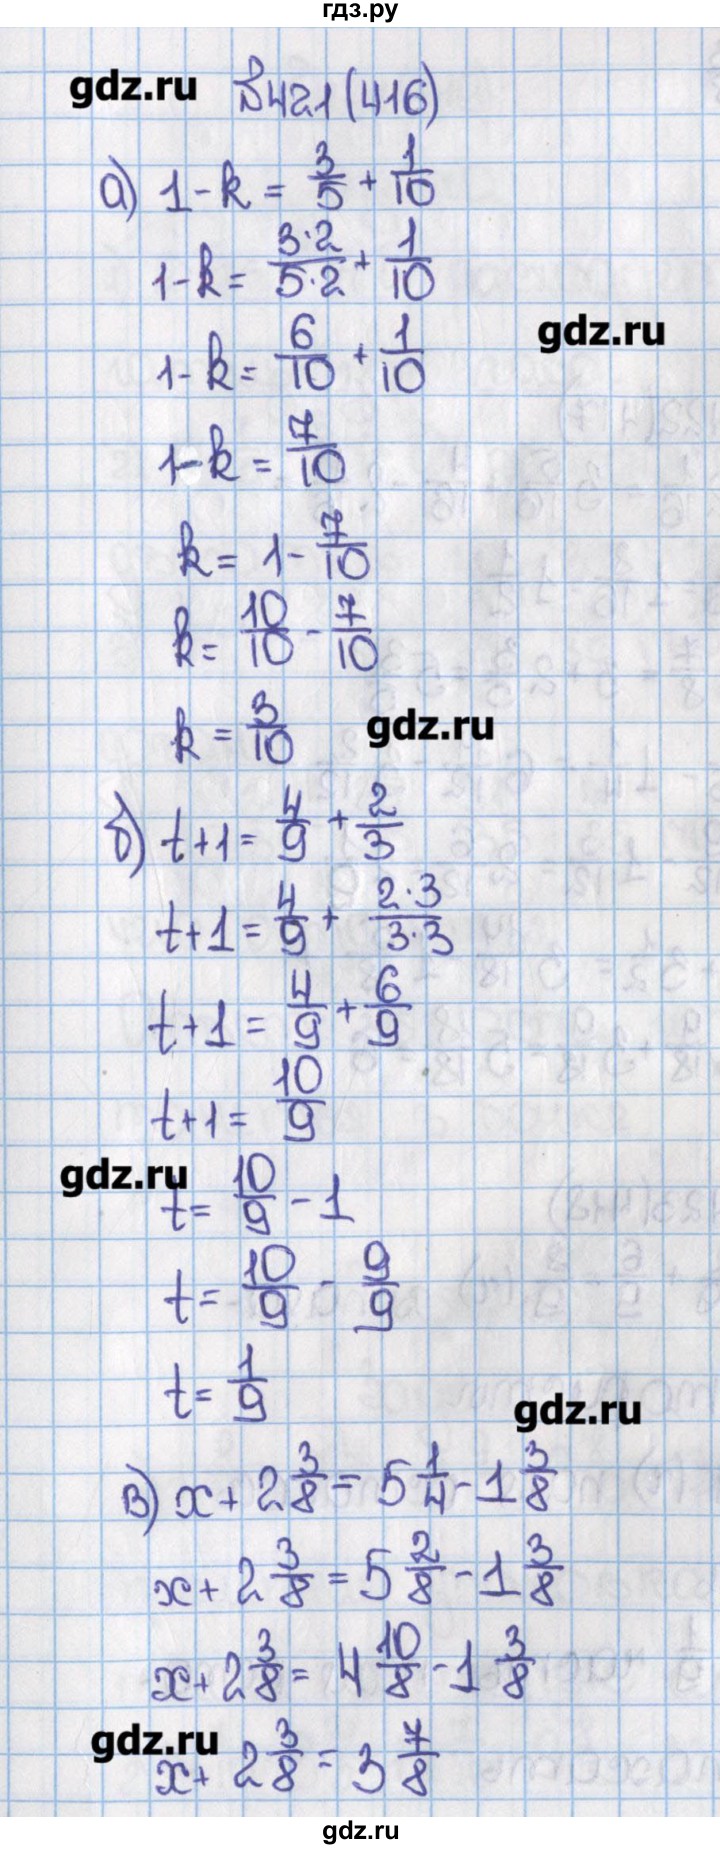 гдз.ру
gdz.ru
№421(416)
а) 1-k = 3/5 + 1/10
1-k = 3·2/5·2 + 1/10
gdz.ru
1-k = 6/10 + 1/10
1-k = 7/10
k = 1 - 7/10
k = 10/10 - 7/10
k = 3/10
gdz.ru
б) t+1 = 4/9 + 2/3
t+1 = 4/9 + 2·3/3·3
t+1 = 4/9 + 6/9
t+1 = 10/9
gdz.ru
t = 10/9 - 1
t = 10/9 - 9/9
t = 1/9
gdz.ru
в) x + 2 3/8 = 5 1/4 - 1 3/8
x + 2 3/8 = 5 2/8 - 1 3/8
x + 2 3/8 = 4 10/8 - 1 3/8
gdz.ru
x + 2 3/8 = 3 7/8
gdz.ru